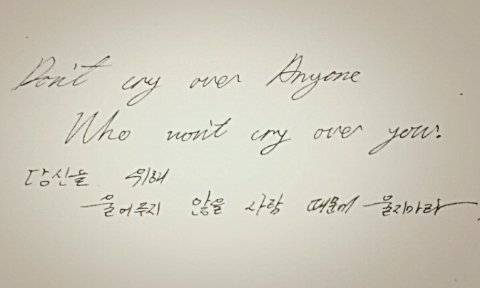 Don't cry over Anyone
Who won't cry over you.
당신을 위해
울어주지 않을 사람 때문에 울지마라